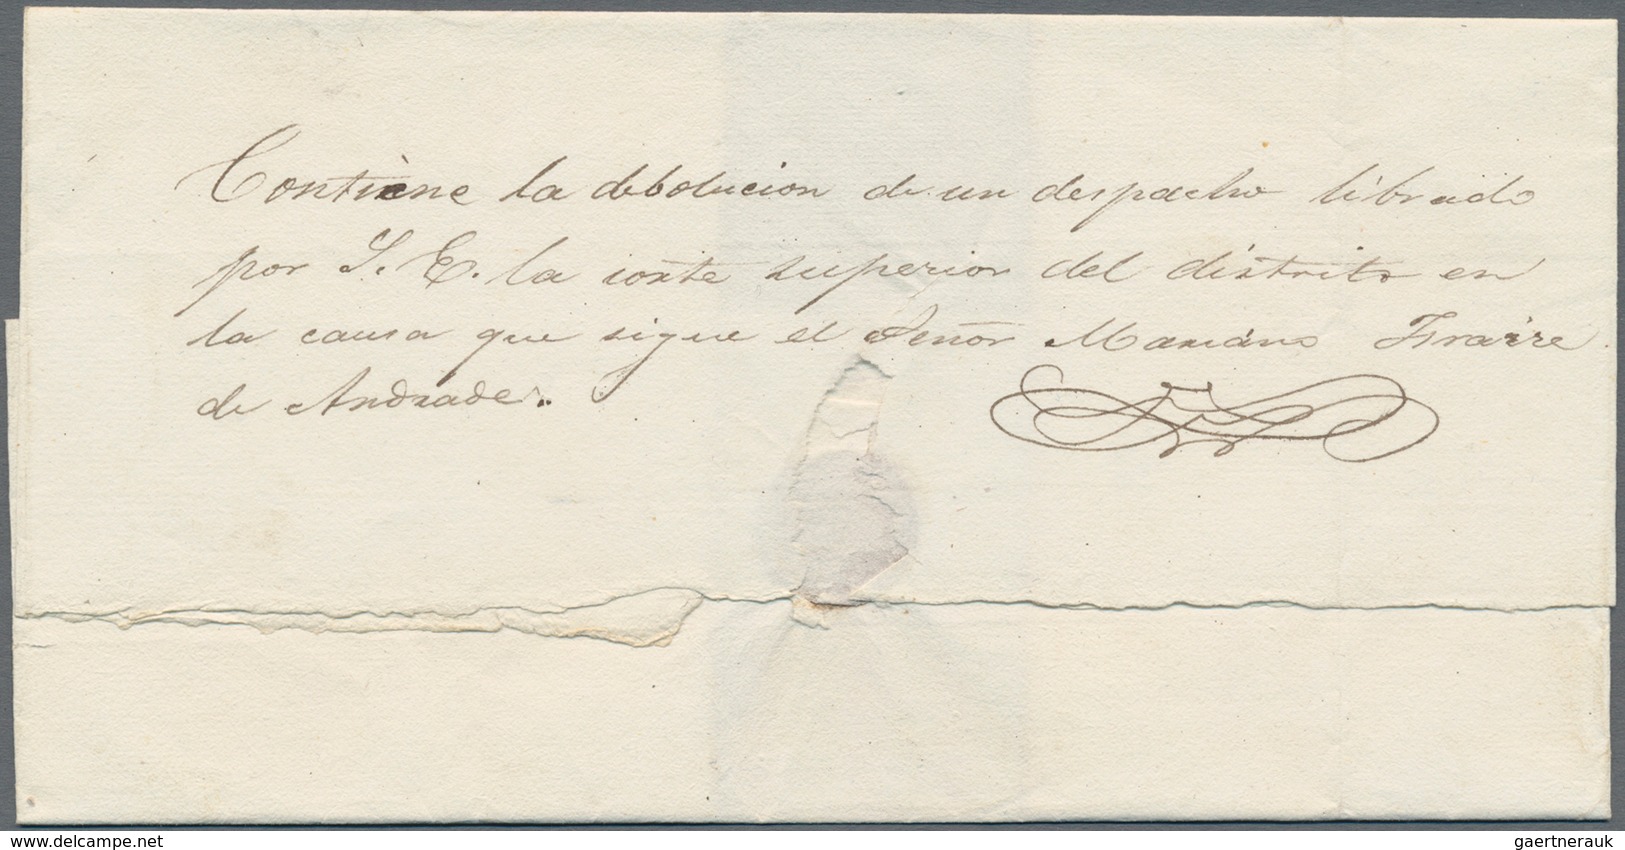 Contiene la debolucion de un despacho librado
por S. E. la corte superior del distrito en
la causa que sigue el Señor Mariano Fraire
de Andrade.
www.delcampe.net
gaertnerauk